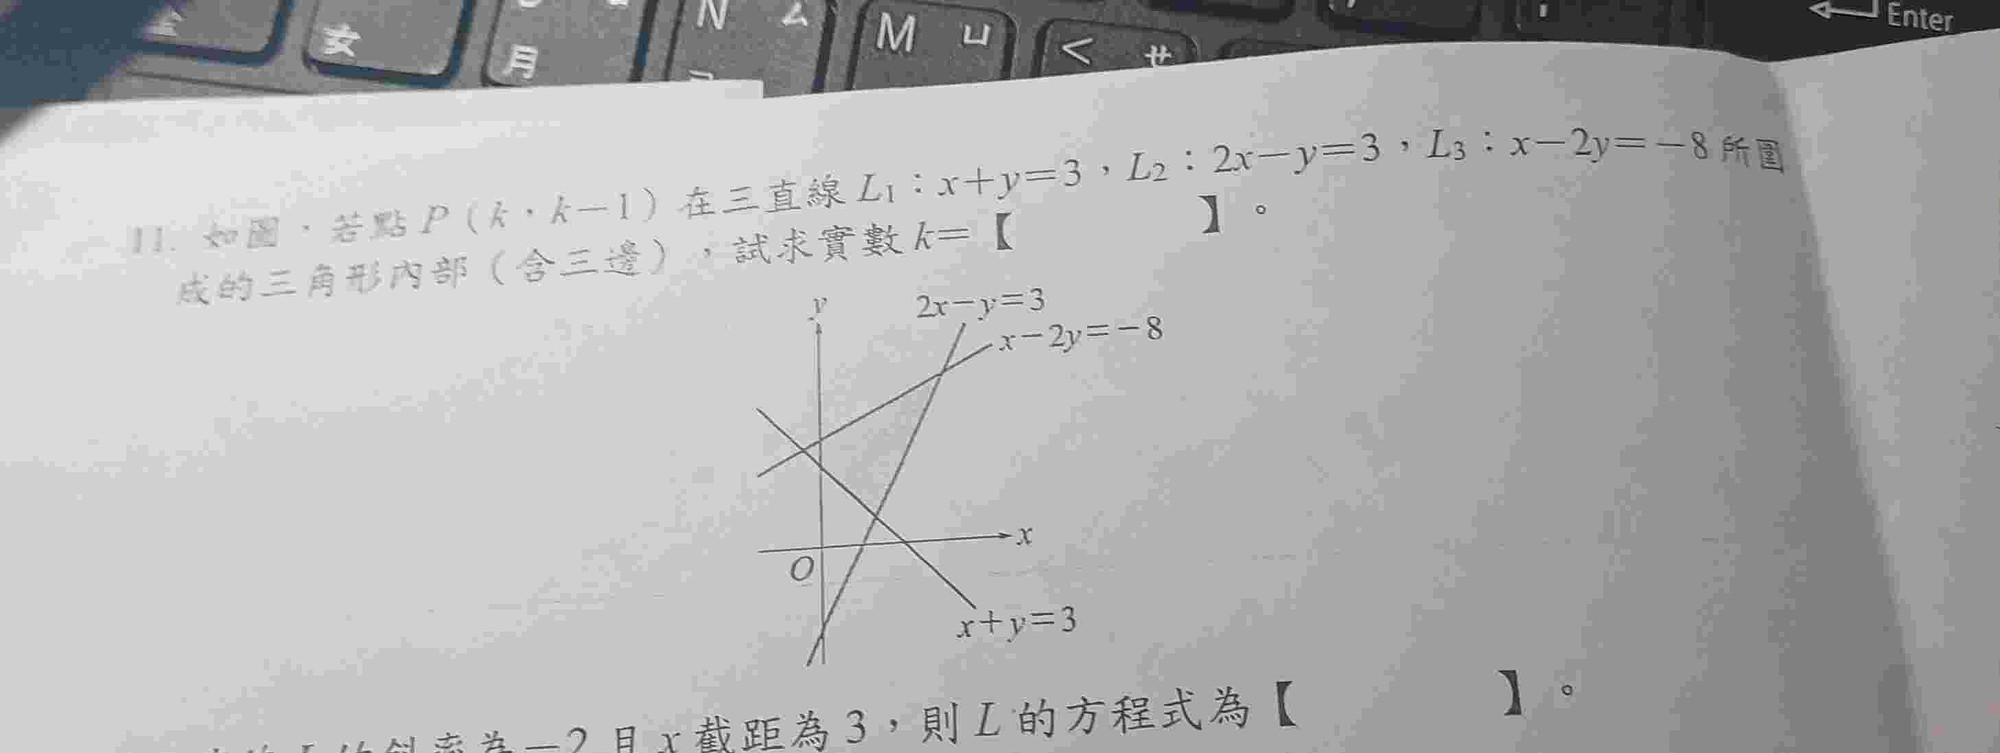 女
月
N ㄙ
M ㄩ
< ㄝ
Enter
11. 如圖,若點 P(k,k-1) 在三直線 L₁:x+y=3,L₂:2x-y=3,L₃:x-2y=-8 所圍
成的三角形內部(含三邊),試求實數 k=【 】。
y
2x-y=3
x-2y=-8
x
O
x+y=3
-2 且 x 截距為 3,則 L 的方程式為【 】。